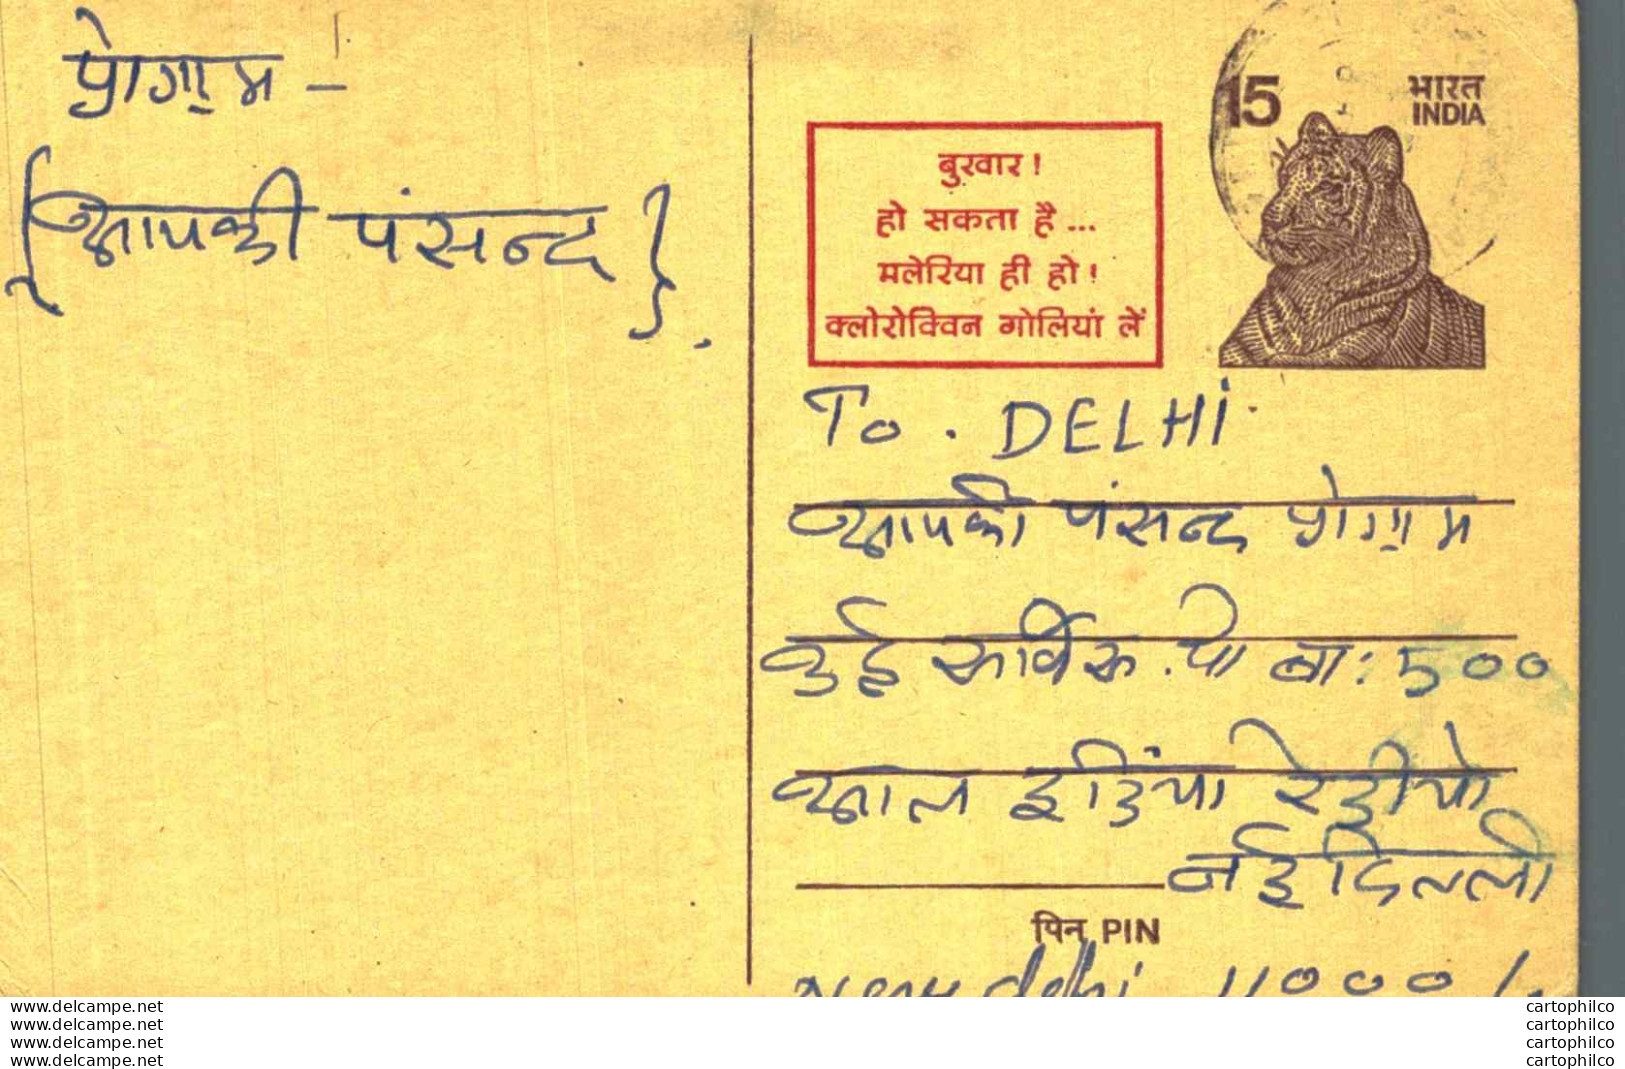 प्रोग्राम -
{आपकी पंसन्द}.
15 भारत
INDIA
बुखार !
हो सकता है ...
मलेरिया ही हो !
क्लोरोक्विन गोलियां लें
To . DELHI.
आपकी पंसन्द प्रोग्राम
सर्विस . पो बा : ५००
आल इडिंया रेडीयो
नई दिल्ली
पिन PIN
New delhi 11000
www.delcampe.net cartophilco
www.delcampe.net cartophilco
www.delcampe.net cartophilco
www.delcampe.net cartophilco